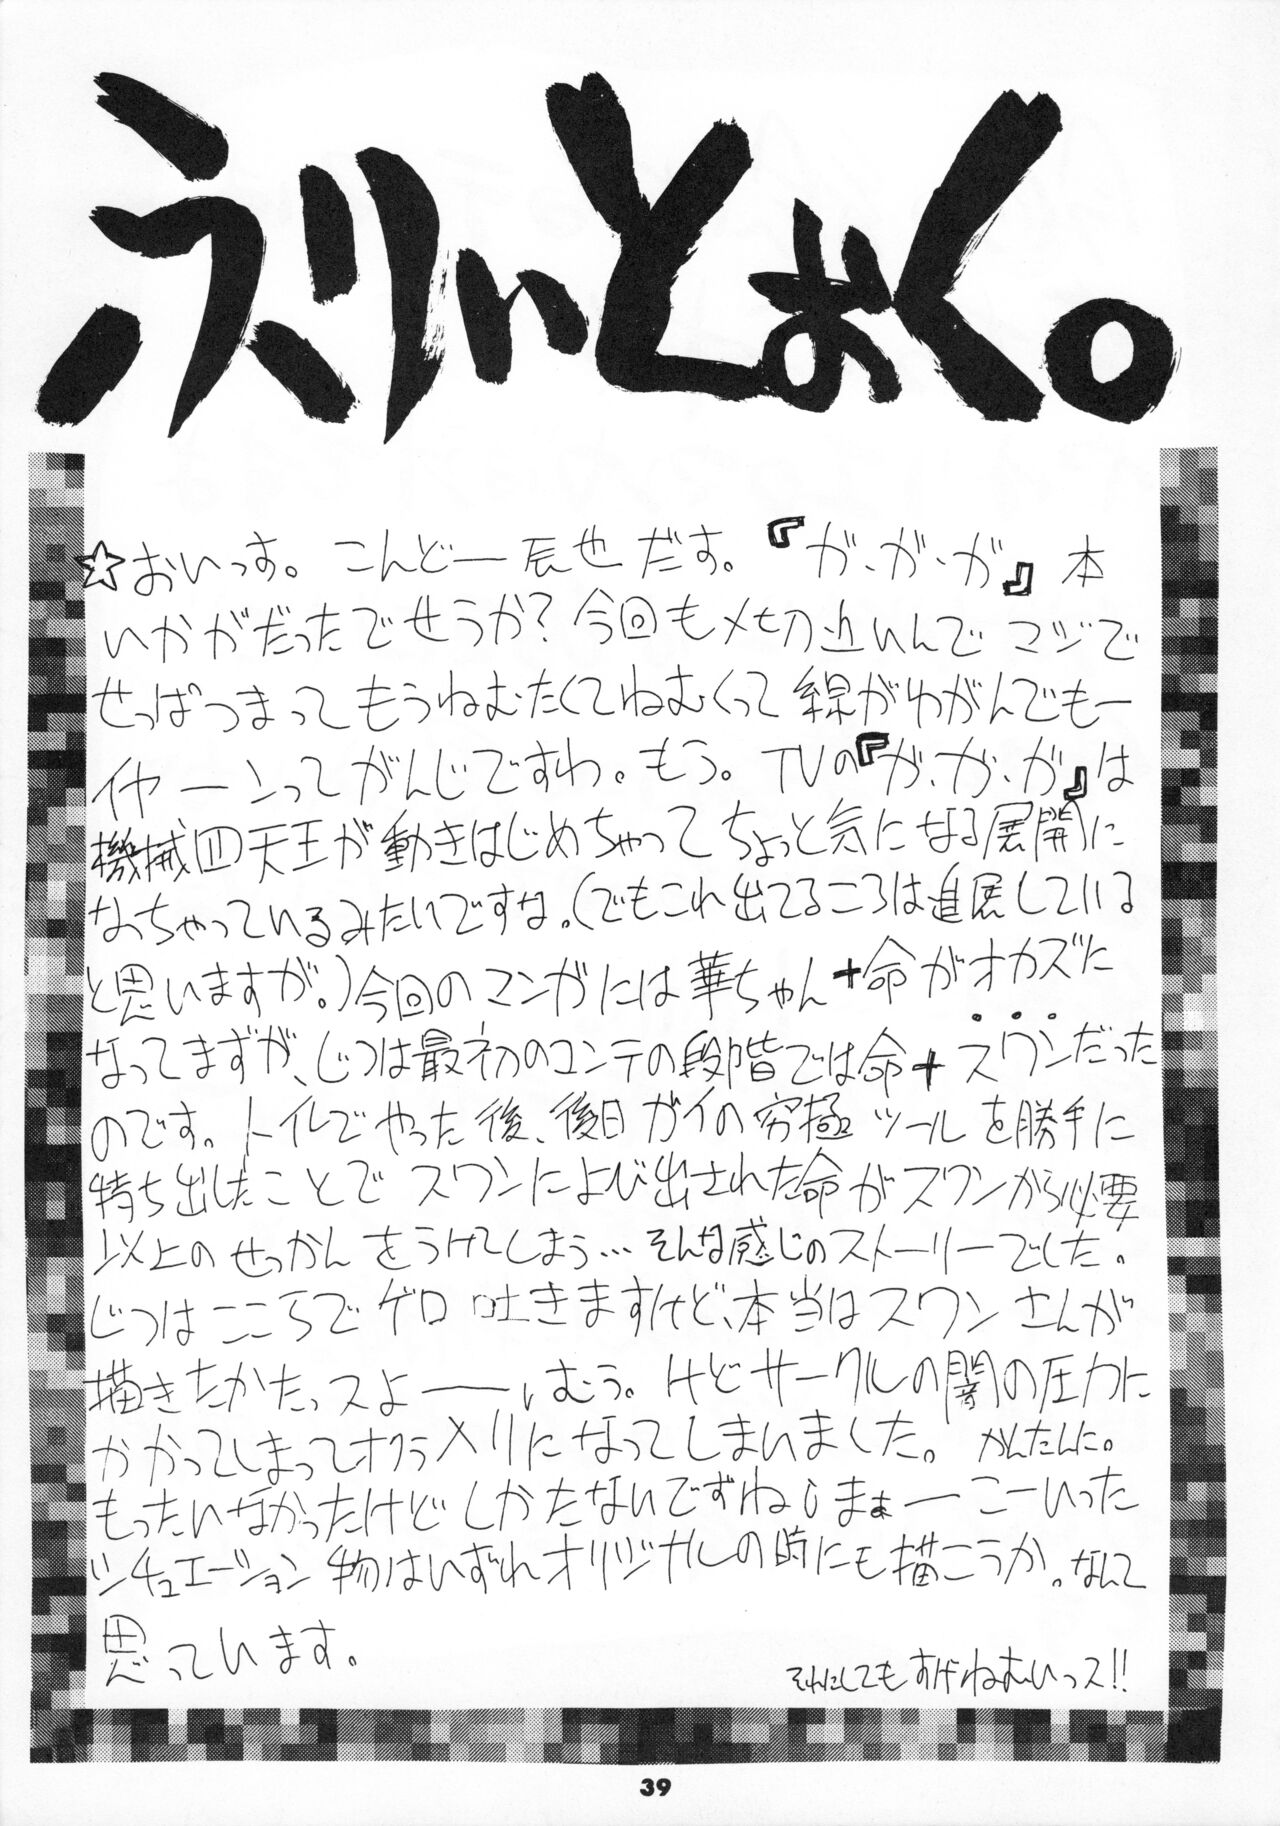 えりぃとぉく。
☆おいっす。こんどー辰也だす。『ガ・ガ・ガ』本
いかがだったでせうか?今回もメ切近いんでマジで
せっぱつまってもうねむたくてねむくって線がわがんでもー
イヤーンってがんじですわ。もう。TVの『ガ・ガ・ガ』は
機械四天王が動きはじめちゃってちょっと気になる展開に
なっちゃっているみたいですな。(でもこれ出てるころは進展している
と思いますが。)今回のマンガには華ちゃん+命がオカズに
なってますが、じつは最初のコンテの段階では命+スワンだった
のです。トイレでやった後、後日ガイの究極ツールを勝手に
持ち出したことでスワンによび出された命がスワンから必要
以上のせっかんをうけてしまう…そんな感じのストーリーでした。
じつはこころでゲロ吐きますけど、本当はスワンさんが
描きたかたっスよーーいむう。けどサークルの闇の圧力に
かかってしまってオクラ入りになってしまいました。かんたんに。
もったいなかったけどしかたないですねしまぁーこーいった
シチュエーション物はいずれオリジナルの時にも描こうか。なんて
思っています。
それにしてもすげーねむいっス!!
39